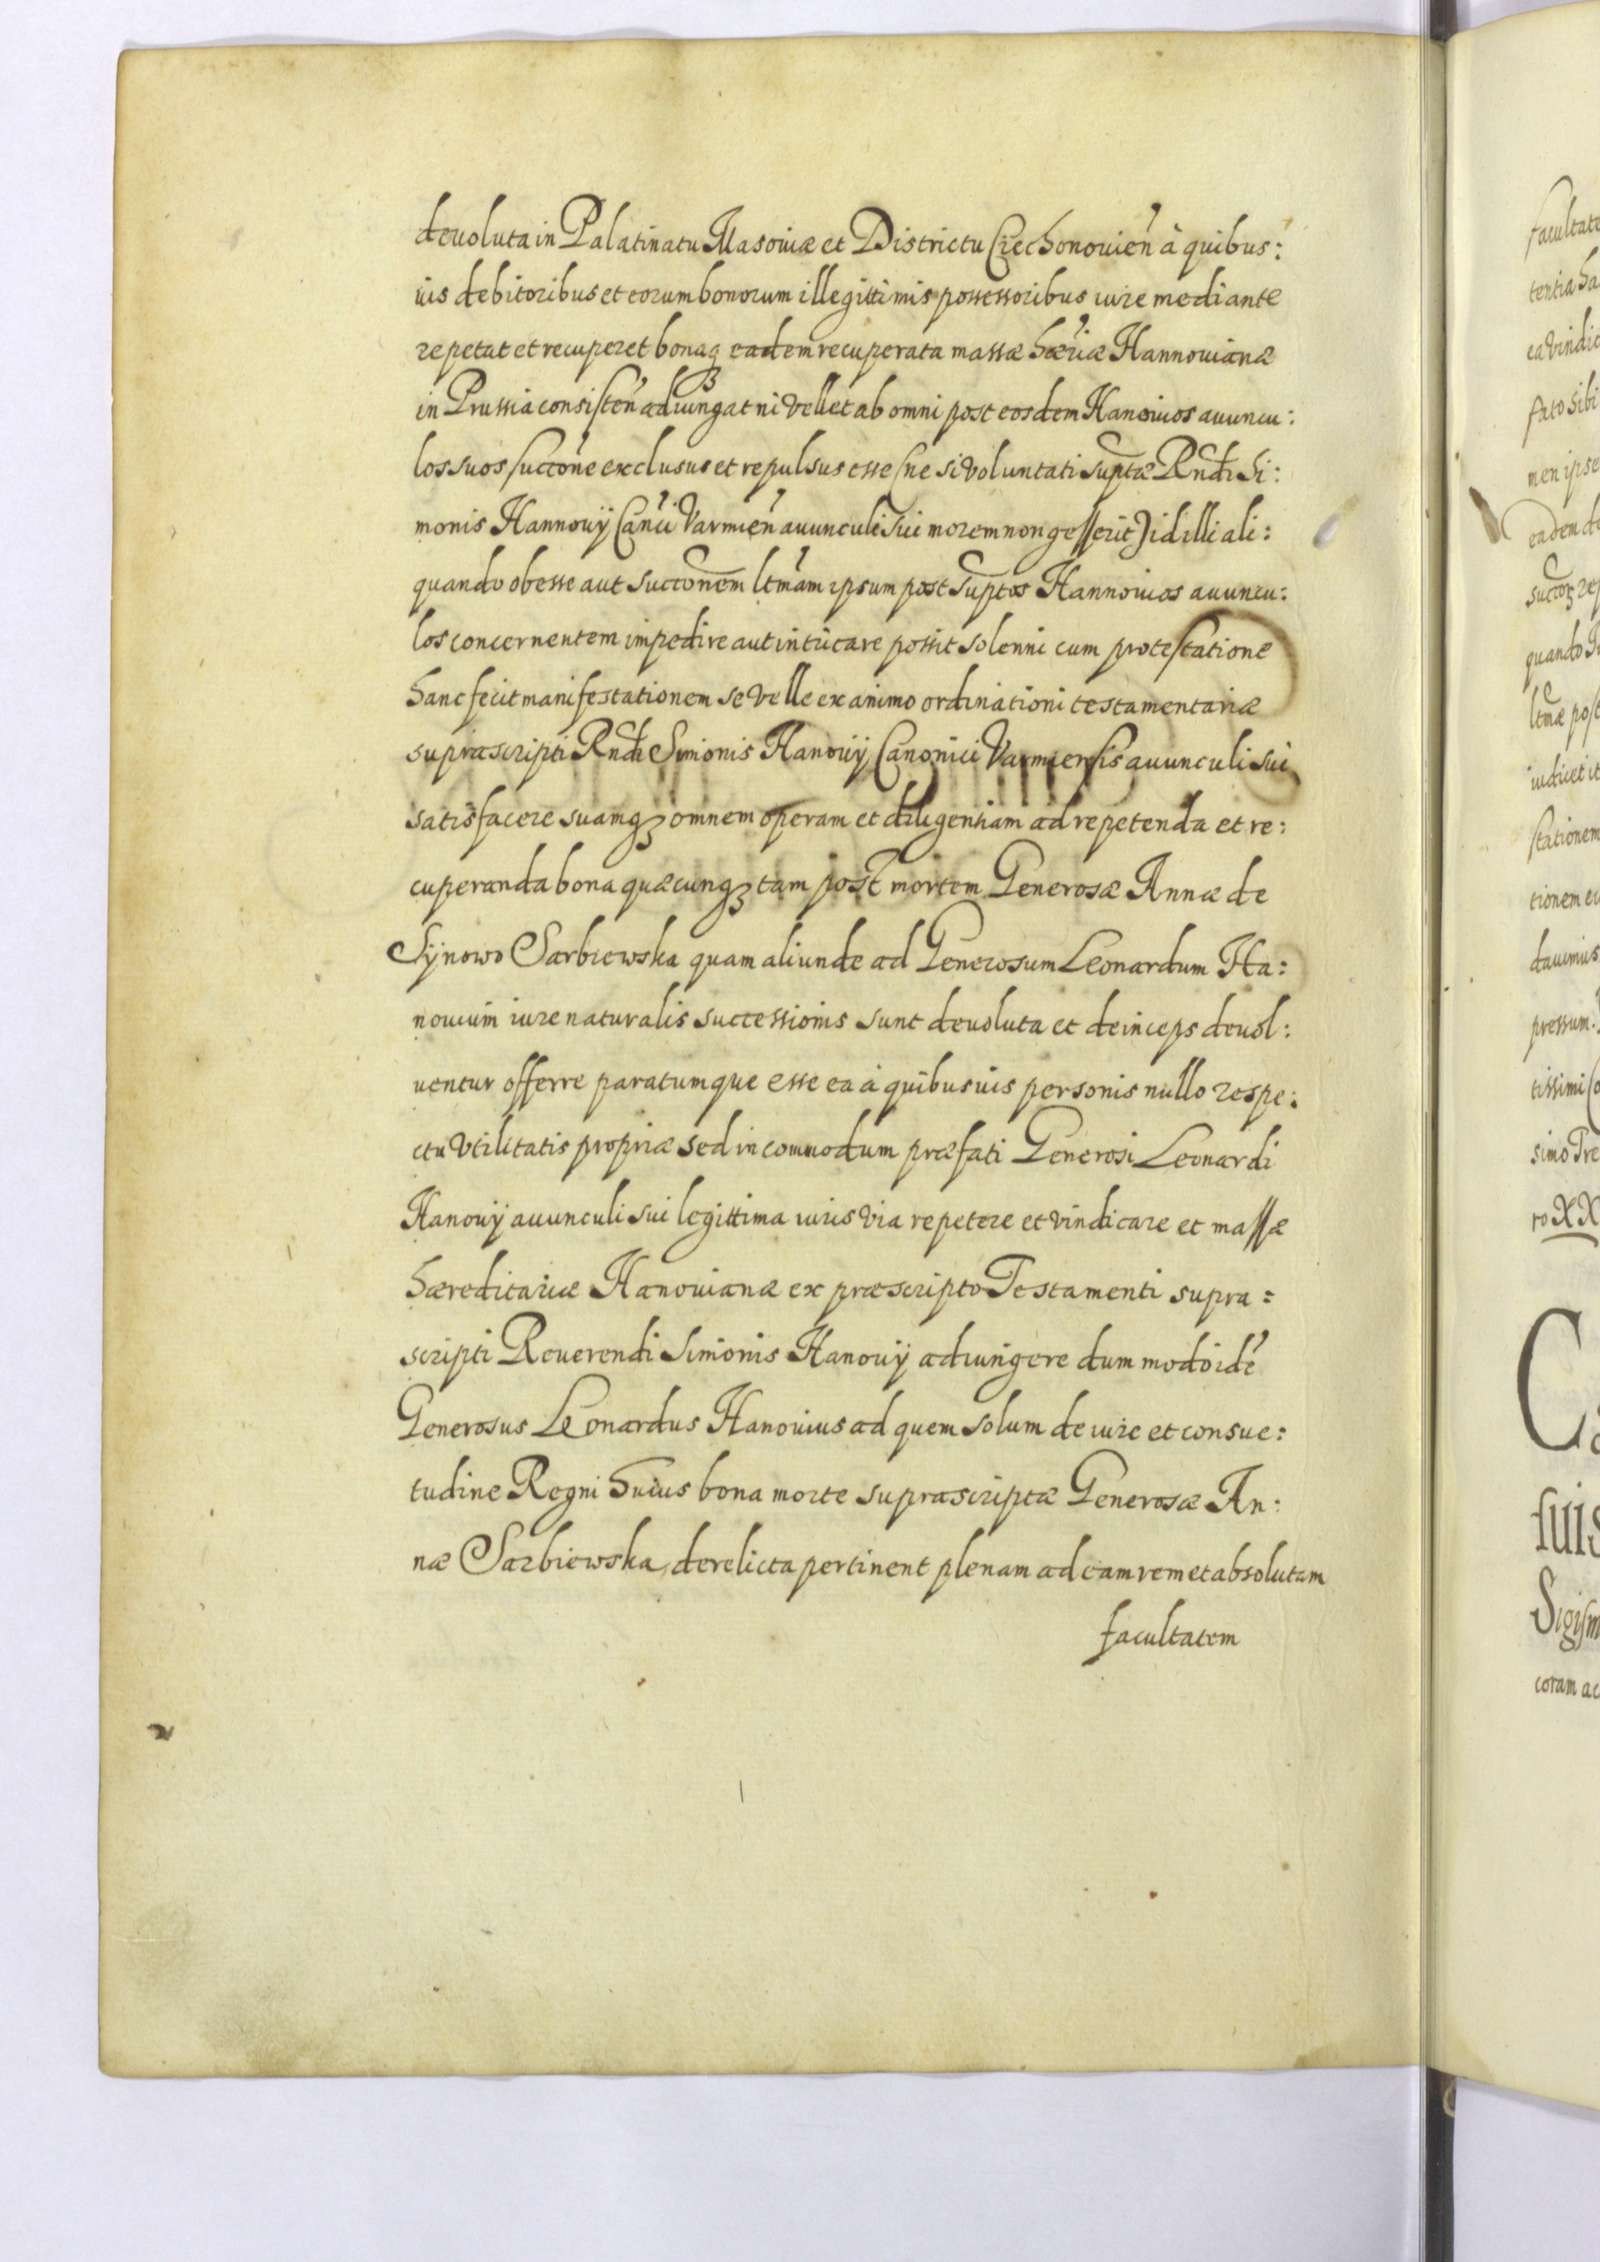 deuoluta in Palatinatu Masouiæ et Districtu Ciechonouien̄ à quibus:
uis debitoribus et eorum bonorum illegittimis possessoribus iure mediante
repetat et recuperet bonaq eadem recuperata massæ hæriæ Hannouianæ
in Prussia consisten̄ adiungat ni vellet ab omni post eosdem Hanouios auuncu:
los suos succōne exclusus et repulsus esse (ne si voluntati suptæ Rndi Si:
monis Hannouÿ Canci Varmien̄ auunculi sui morem non gesserit) id illi ali:
quando obesse aut succonem ltmam ipsum post suptos Hannouios auuncu:
los concernentem impedire aut intricare possit solenni cum protestatione
hanc fecit manifestationem se velle ex animo ordinationi testamentariæ
suprascripti Rndi Simonis Hanouÿ Canonici Varmiensis auunculi sui
satisfacere suamq₃ omnem operam et diligentiam ad repetenda et re:
cuperanda bona quæcunq₃ tam post mortem Generosæ Annæ de
Sÿnowo Sarbiewska quam aliunde ad Generosum Leonardum Ha:
nouium iure naturalis successionis sunt deuoluta et deinceps deuol:
uentur offerre paratumque esse ea à quibusuis personis nullo respe:
ctu vtilitatis propriæ sed in commodum præfati Generosi Leonardi
Hanouÿ auunculi sui legittima iuris via repetere et vindicare et massæ
hæreditariæ Hanouianæ ex præscripto Testamenti supra:
scripti Reuerendi Simonis Hanouÿ adiungere dum modo idē
Generosus Leonardus Hanouius ad quem solum de iure et consue:
tudine Regni huius bona morte suprascriptæ Generosæ An:
næ Sarbiewska derelicta pertinent plenam ad eam rem et absolutam
facultatem
facultate
tentia ha
ea vindic
fato sibi
men ipse
eadem de
quando
ltmæ post
iudicet it
stationem
tionem eu
dauimus
pressum.
tissimi
simo Tre
ro XX
fuis
Sigism
coram ac